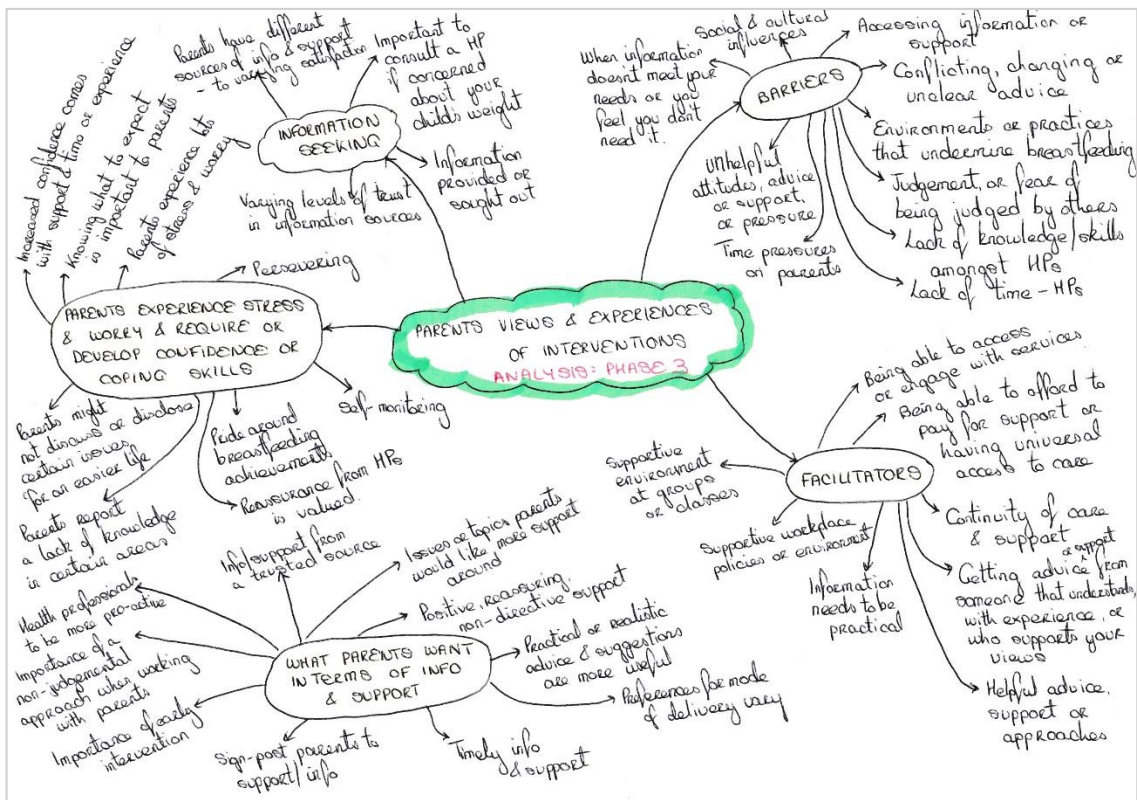 PARENTS VIEWS & EXPERIENCES
OF INTERVENTIONS
ANALYSIS: PHASE 3
INFORMATION
SEEKING
Parents have different
sources of info & support
- to varying satisfaction
Important to
consult a HP
if concerned
about your
child's weight
Information
provided or
sought out
Varying levels of trust
in information sources
BARRIERS
When information
doesn't meet your
needs or you
feel you don't
need it.
Social & cultural
influences
Accessing information or
support
Conflicting, changing or
unclear advice
Environments or practices
that undermine breastfeeding
Judgement, or fear of
being judged by others
Lack of knowledge/skills
amongst HPs
Lack of time - HPs
Unhelpful
attitudes, advice
or support,
or pressure
Time pressures
on parents
PARENTS EXPERIENCE STRESS
& WORRY & REQUIRE OR
DEVELOP CONFIDENCE OR
COPING SKILLS
Increased confidence comes
with support & time or experience
Knowing what to expect
is important to parents
Parents experience lots
of stress & worry
Persevering
Self-monitoring
Pride around
breastfeeding
achievements
Reassurance from HPs
is valued.
Parents might
not discuss or disclose
certain issues
for an easier life
Parents report
a lack of knowledge
in certain areas
FACILITATORS
Being able to access
or engage with services
Being able to afford to
pay for support or
having universal
access to care
Continuity of care
& support
Getting advice or support from
someone that understands,
with experience, or
who supports your
views
Helpful advice,
support or
approaches
Information
needs to be
practical
Supportive workplace
policies or environment
Supportive
environment
at groups
or classes
WHAT PARENTS WANT
IN TERMS OF INFO
& SUPPORT
Info/support from
a trusted source
Issues or topics parents
would like more support
around
Positive, reassuring,
non-directive support
Practical or realistic
advice & suggestions
are more useful
Preferences for mode
of delivery vary
Timely info
& support
Sign-post parents to
support/info
Importance of early
intervention
Importance of a
non-judgemental
approach when working
with parents
Health professionals
to be more pro-active